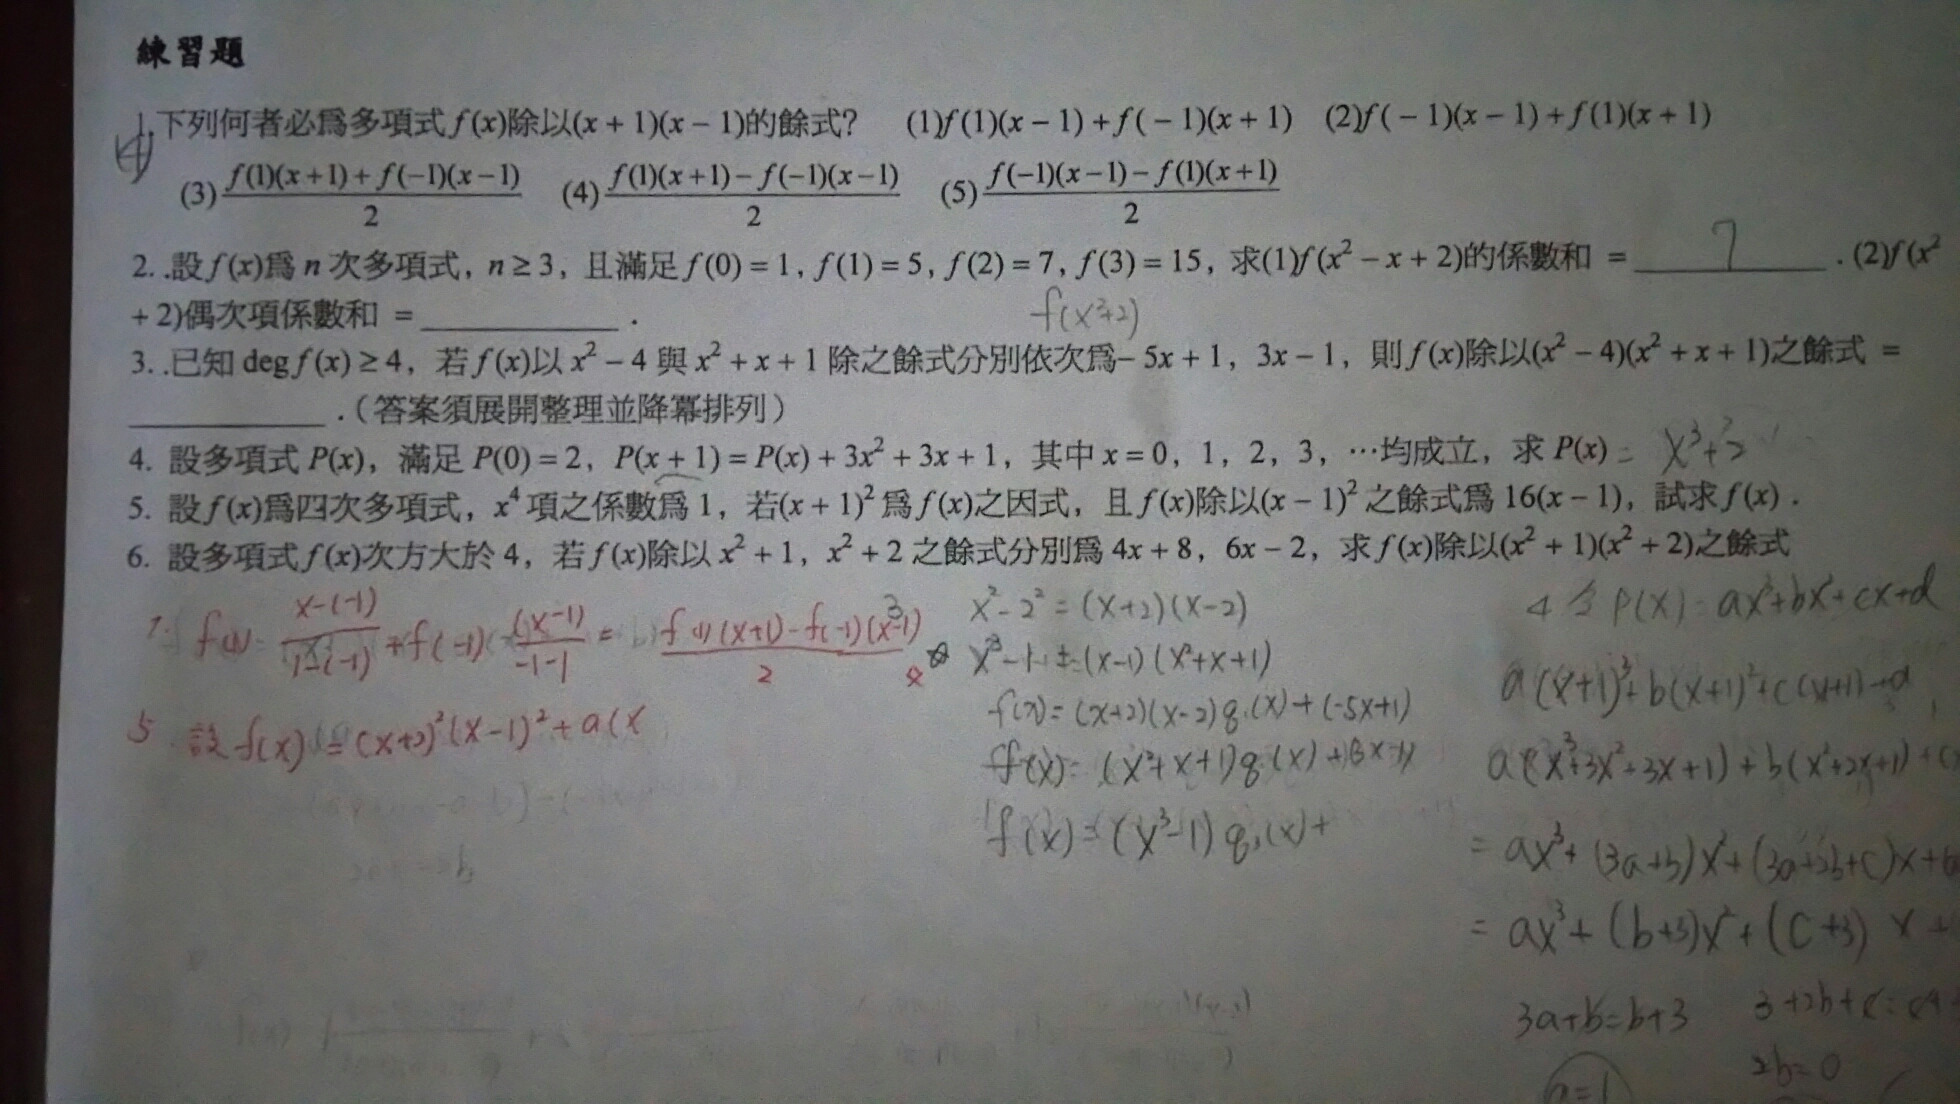 練習題
(4)
1.下列何者必爲多項式 f(x)除以(x + 1)(x − 1)的餘式? (1)f(1)(x − 1) + f(− 1)(x + 1) (2)f(− 1)(x − 1) + f(1)(x + 1)
(3) f(1)(x+1)+f(−1)(x−1) / 2 (4) f(1)(x+1)−f(−1)(x−1) / 2 (5) f(−1)(x−1)−f(1)(x+1) / 2
2. .設 f(x)爲 n 次多項式, n ≥ 3, 且滿足 f(0) = 1, f(1) = 5, f(2) = 7, f(3) = 15, 求(1)f(x² − x + 2)的係數和 = 7 . (2)f(x²
+ 2)偶次項係數和 = ____ .
f(x²+2)
3. .已知 deg f(x) ≥ 4, 若 f(x)以 x² − 4 與 x² + x + 1 除之餘式分別依次爲− 5x + 1, 3x − 1, 則 f(x)除以(x² − 4)(x² + x + 1)之餘式 =
____ .(答案須展開整理並降冪排列)
4. 設多項式 P(x), 滿足 P(0) = 2, P(x + 1) = P(x) + 3x² + 3x + 1, 其中 x = 0, 1, 2, 3, …均成立, 求 P(x) = x³+2
5. 設 f(x)爲四次多項式, x⁴ 項之係數爲 1, 若(x + 1)² 爲 f(x)之因式, 且 f(x)除以(x − 1)² 之餘式爲 16(x − 1), 試求 f(x) .
6. 設多項式 f(x)次方大於 4, 若 f(x)除以 x² + 1, x² + 2 之餘式分別爲 4x + 8, 6x − 2, 求 f(x)除以(x² + 1)(x² + 2)之餘式
1. f(1) x-(-1) / 1-(-1) + f(-1) (x-1) / -1-1 = f(1)(x+1)-f(-1)(x-1) / 2
5 設 f(x) = (x+2)²(x-1)² + a(x
x²-2² = (x+2)(x-2)
x³-1 = (x-1)(x²+x+1)
f(x) = (x+2)(x-2)q(x)+(-5x+1)
f(x) = (x²+x+1)q(x)+(3x-1)
f(x) = (x³-1)q(x)+
4 令 P(x) = ax³+bx²+cx+d
a(x+1)³+b(x+1)²+c(x+1)+d
a(x³+3x²+3x+1)+b(x²+2x+1)+c
= ax³+(3a+b)x²+(3a+2b+c)x+
= ax³+(b+3)x²+(c+3)x+
3a+b=b+3 3+2b+c=c+
a=1 2b=0